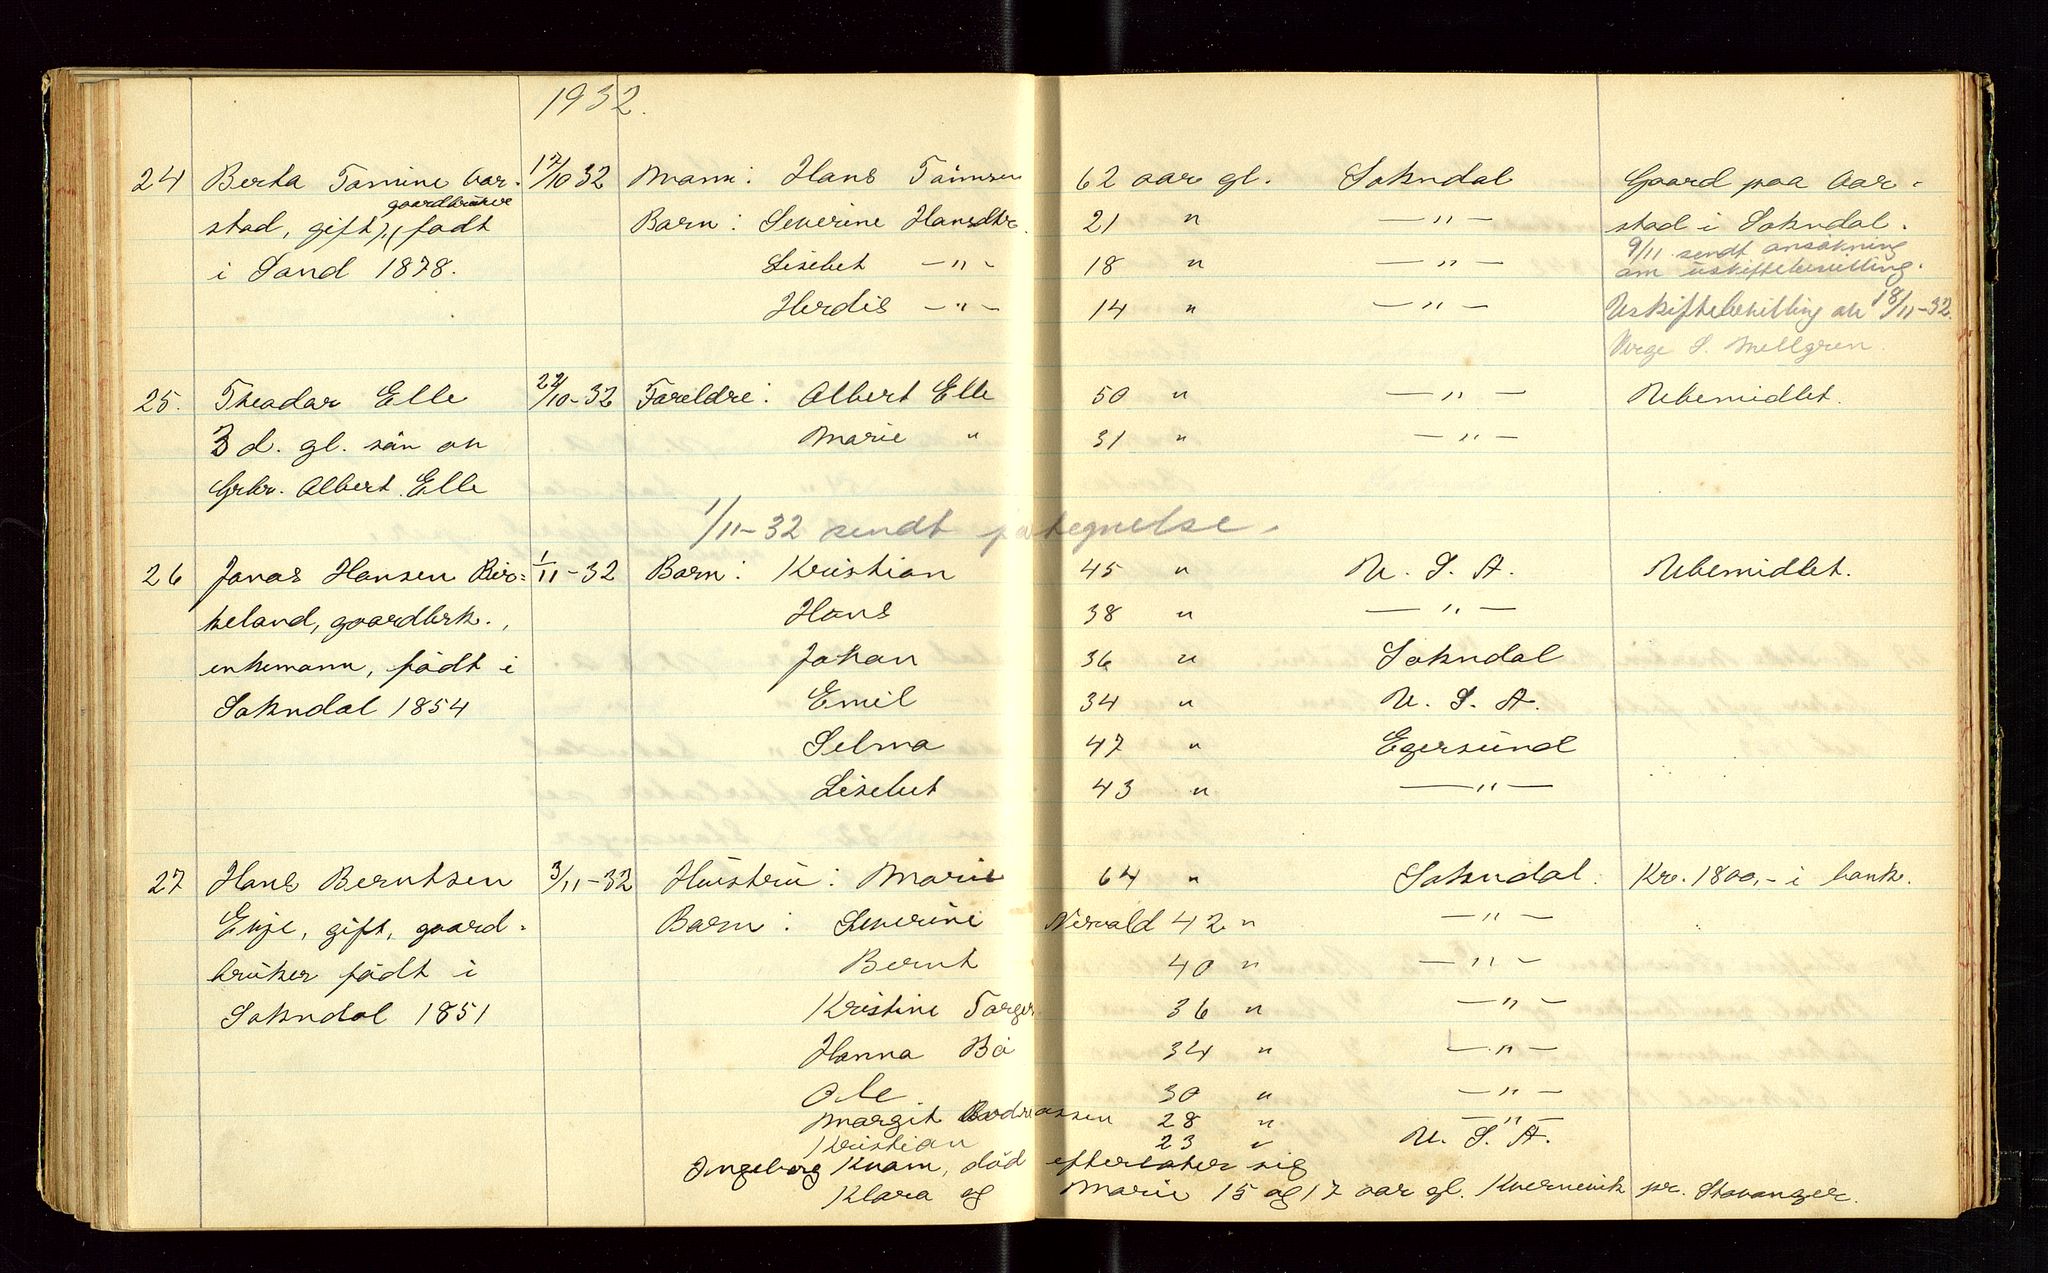 1932.
24 Berta Tomine Aar- 17/10 32 Mann: Hans Tönnesen 62 aar gl. Sokndal Gaard paa Aar-
gaardbruker
stad, gift, født Barn: Severine Hansdtr. 21 " — " — stad i Sokndal.
9/11 sendt ansökning
i Sand 1878. Lisebet — " — 18 " — " — om uskiftebevilling.
Herdis — " — 14 " — " — Uskiftebevilling av 18/11-32.
Verge S. Mellgren.
25. Theodor Elle 22/10-32 Foreldre: Albert Elle 50 " — " — Ubemidlet.
3 d. gl. sön av Marie " 31 " — " —
Grbr. Albert Elle
1/11-32 sendt påtegnelse.
26 Jonas Hansen Bir- 1/11-32 Barn: Kristian 45 " U. S. A. Ubemidlet.
keland, gaardbrk., Hans 38 " — " —
enkemann, födt i Johan 36 " Sokndal
Sokndal 1854 Emil 34 " U. S. A.
Selma 47 " Egersund
Lisebet 43 " — " —
27 Hans Berntsen 3/11-32 Hustru: Marie 64 " Sokndal. Kr. 1800,- i bank.
Evje, gift, gaard- Barn: Severine Nesvald 42 " — " —
bruker födt i Bernt 40 " — " —
Sokndal 1851 Kristine Torger 36 " — " —
Hanna Bö 34 " — " —
Ole 30 " — " —
Margit Andreassen 28 " — " —
Kristian 23 " U. S. A.
Ingeborg Kvam, död efterlater sig
Klara og Marie 15 og 17 aar gl. Kvernevik pr. Stavanger.